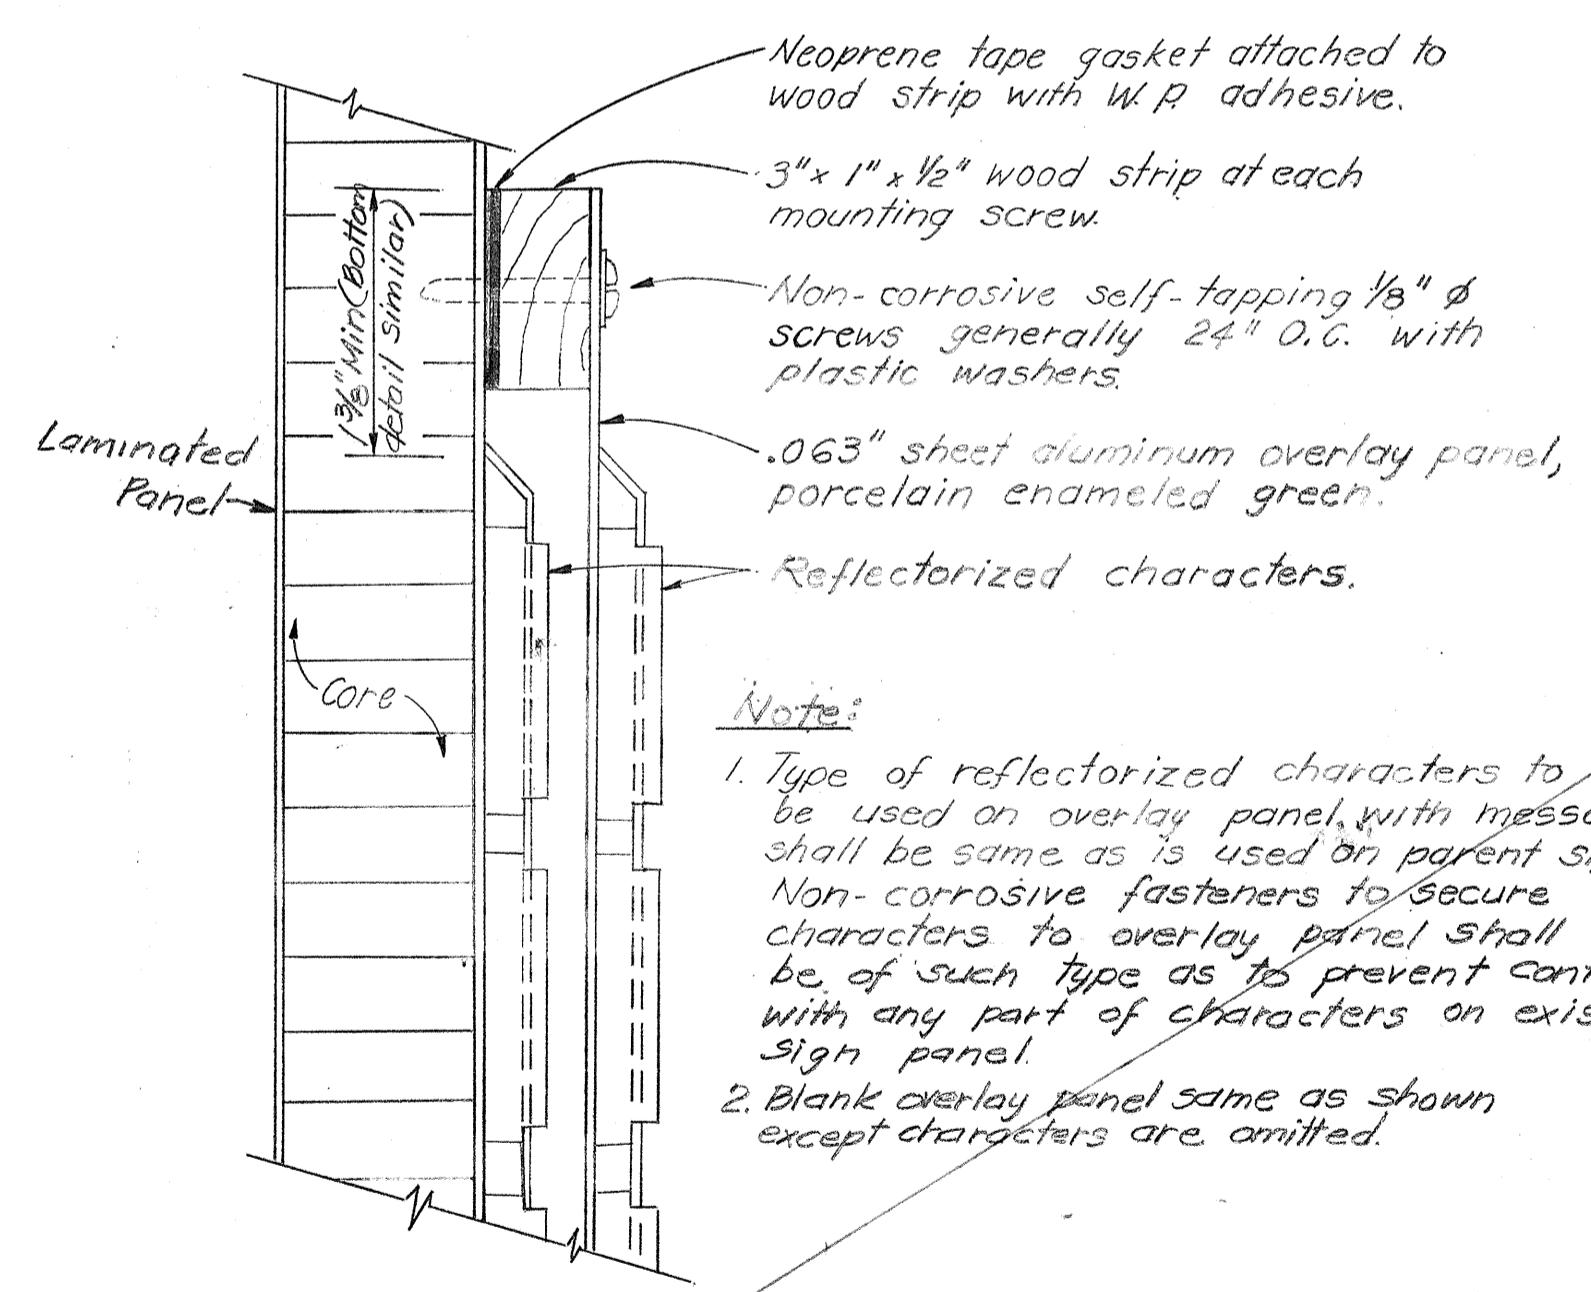 Neoprene tape gasket attached to
wood strip with W.P. adhesive.
3" x 1" x 1/2" wood strip at each
mounting screw.
Non-corrosive self-tapping 1/8" ø
screws generally 24" O.C. with
plastic washers.
.063" sheet aluminum overlay panel,
porcelain enameled green.
Reflectorized characters.
1 3/8" Min (Bottom
detail similar)
Laminated
Panel
Core
Note:
1. Type of reflectorized characters to
be used on overlay panel with
shall be same as is used on parent
Non-corrosive fasteners to secure
characters to overlay panel shall
be of such type as to prevent
with any part of characters on
sign panel.
2. Blank overlay panel same as shown
except characters are omitted.